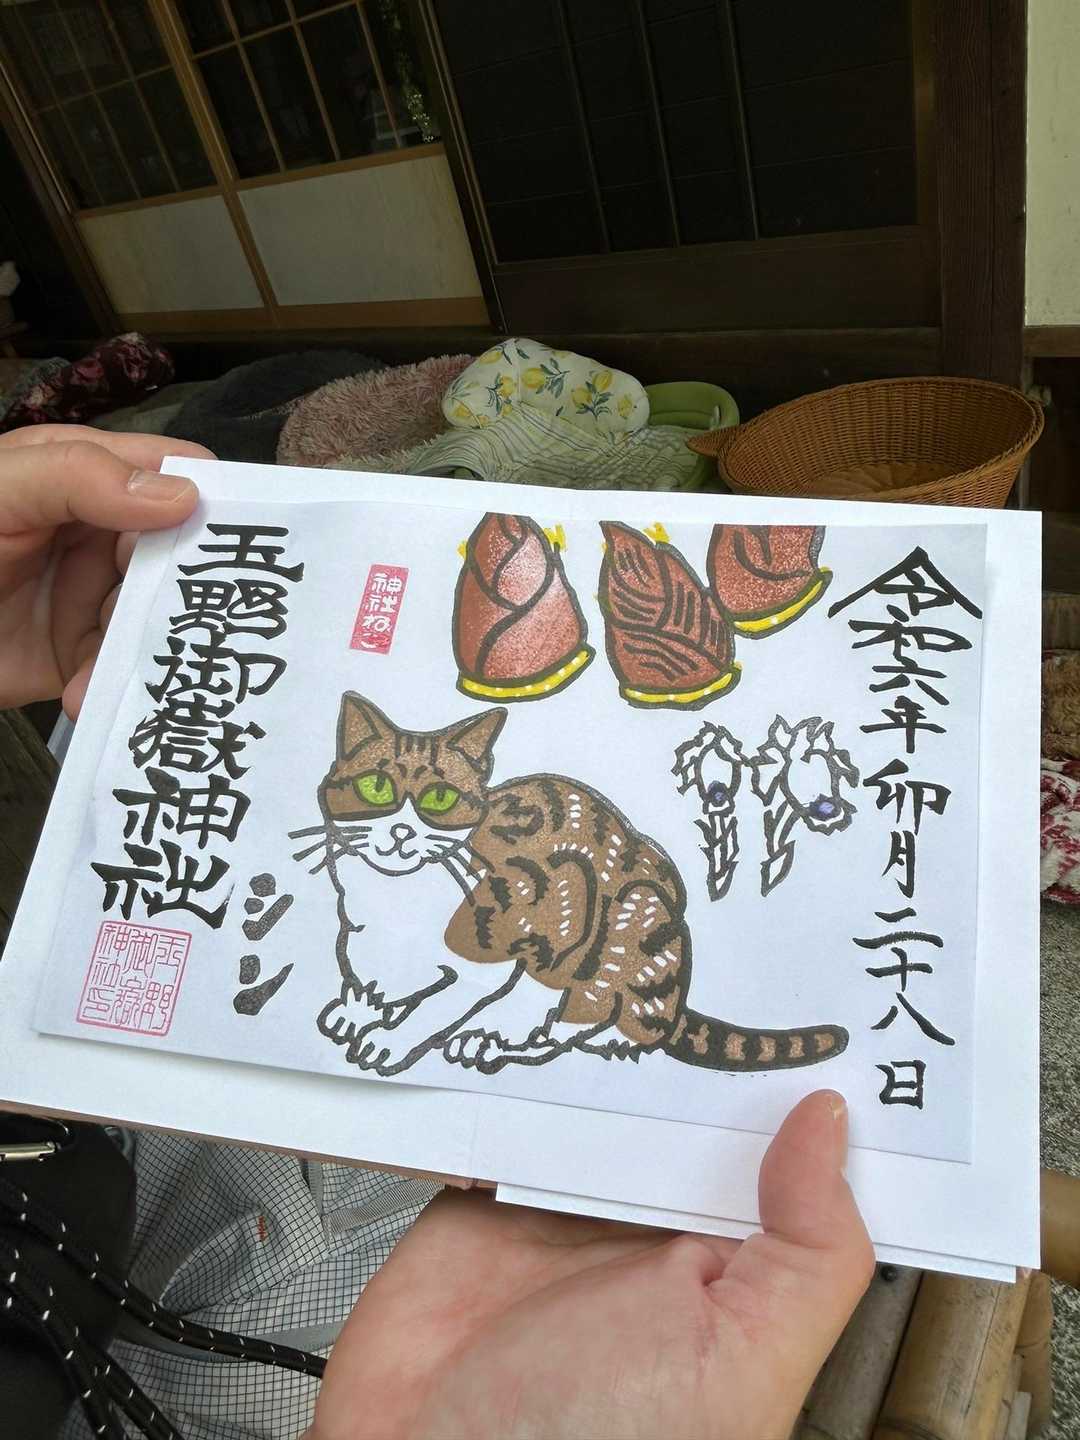 令和六年卯月二十八日
神社ねこ
シン
玉野御嶽神社
玉野御嶽神社印